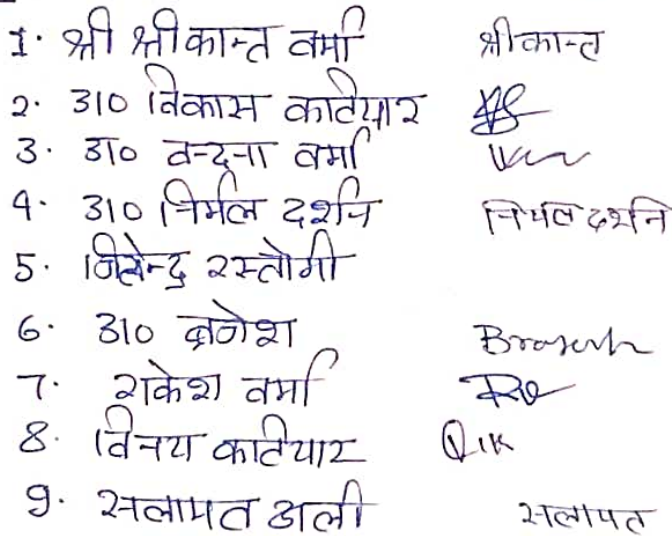 1. श्री श्रीकान्त वर्मा श्रीकान्त
2. डा० विकास कटियार
3. डा० वन्दना वर्मा
4. डा० निर्मल दर्शन निर्मल दर्शन
5. जितेन्द्र रस्तोगी
6. डा० ब्रजेश Brajesh
7. राकेश वर्मा
8. विनय कटियार
9. सलामत अली सलामत